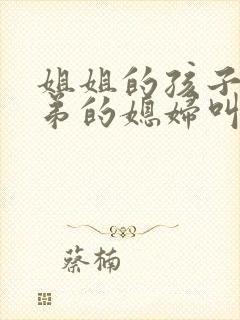 姐姐的孩子
弟的媳婦叫
蔡楠